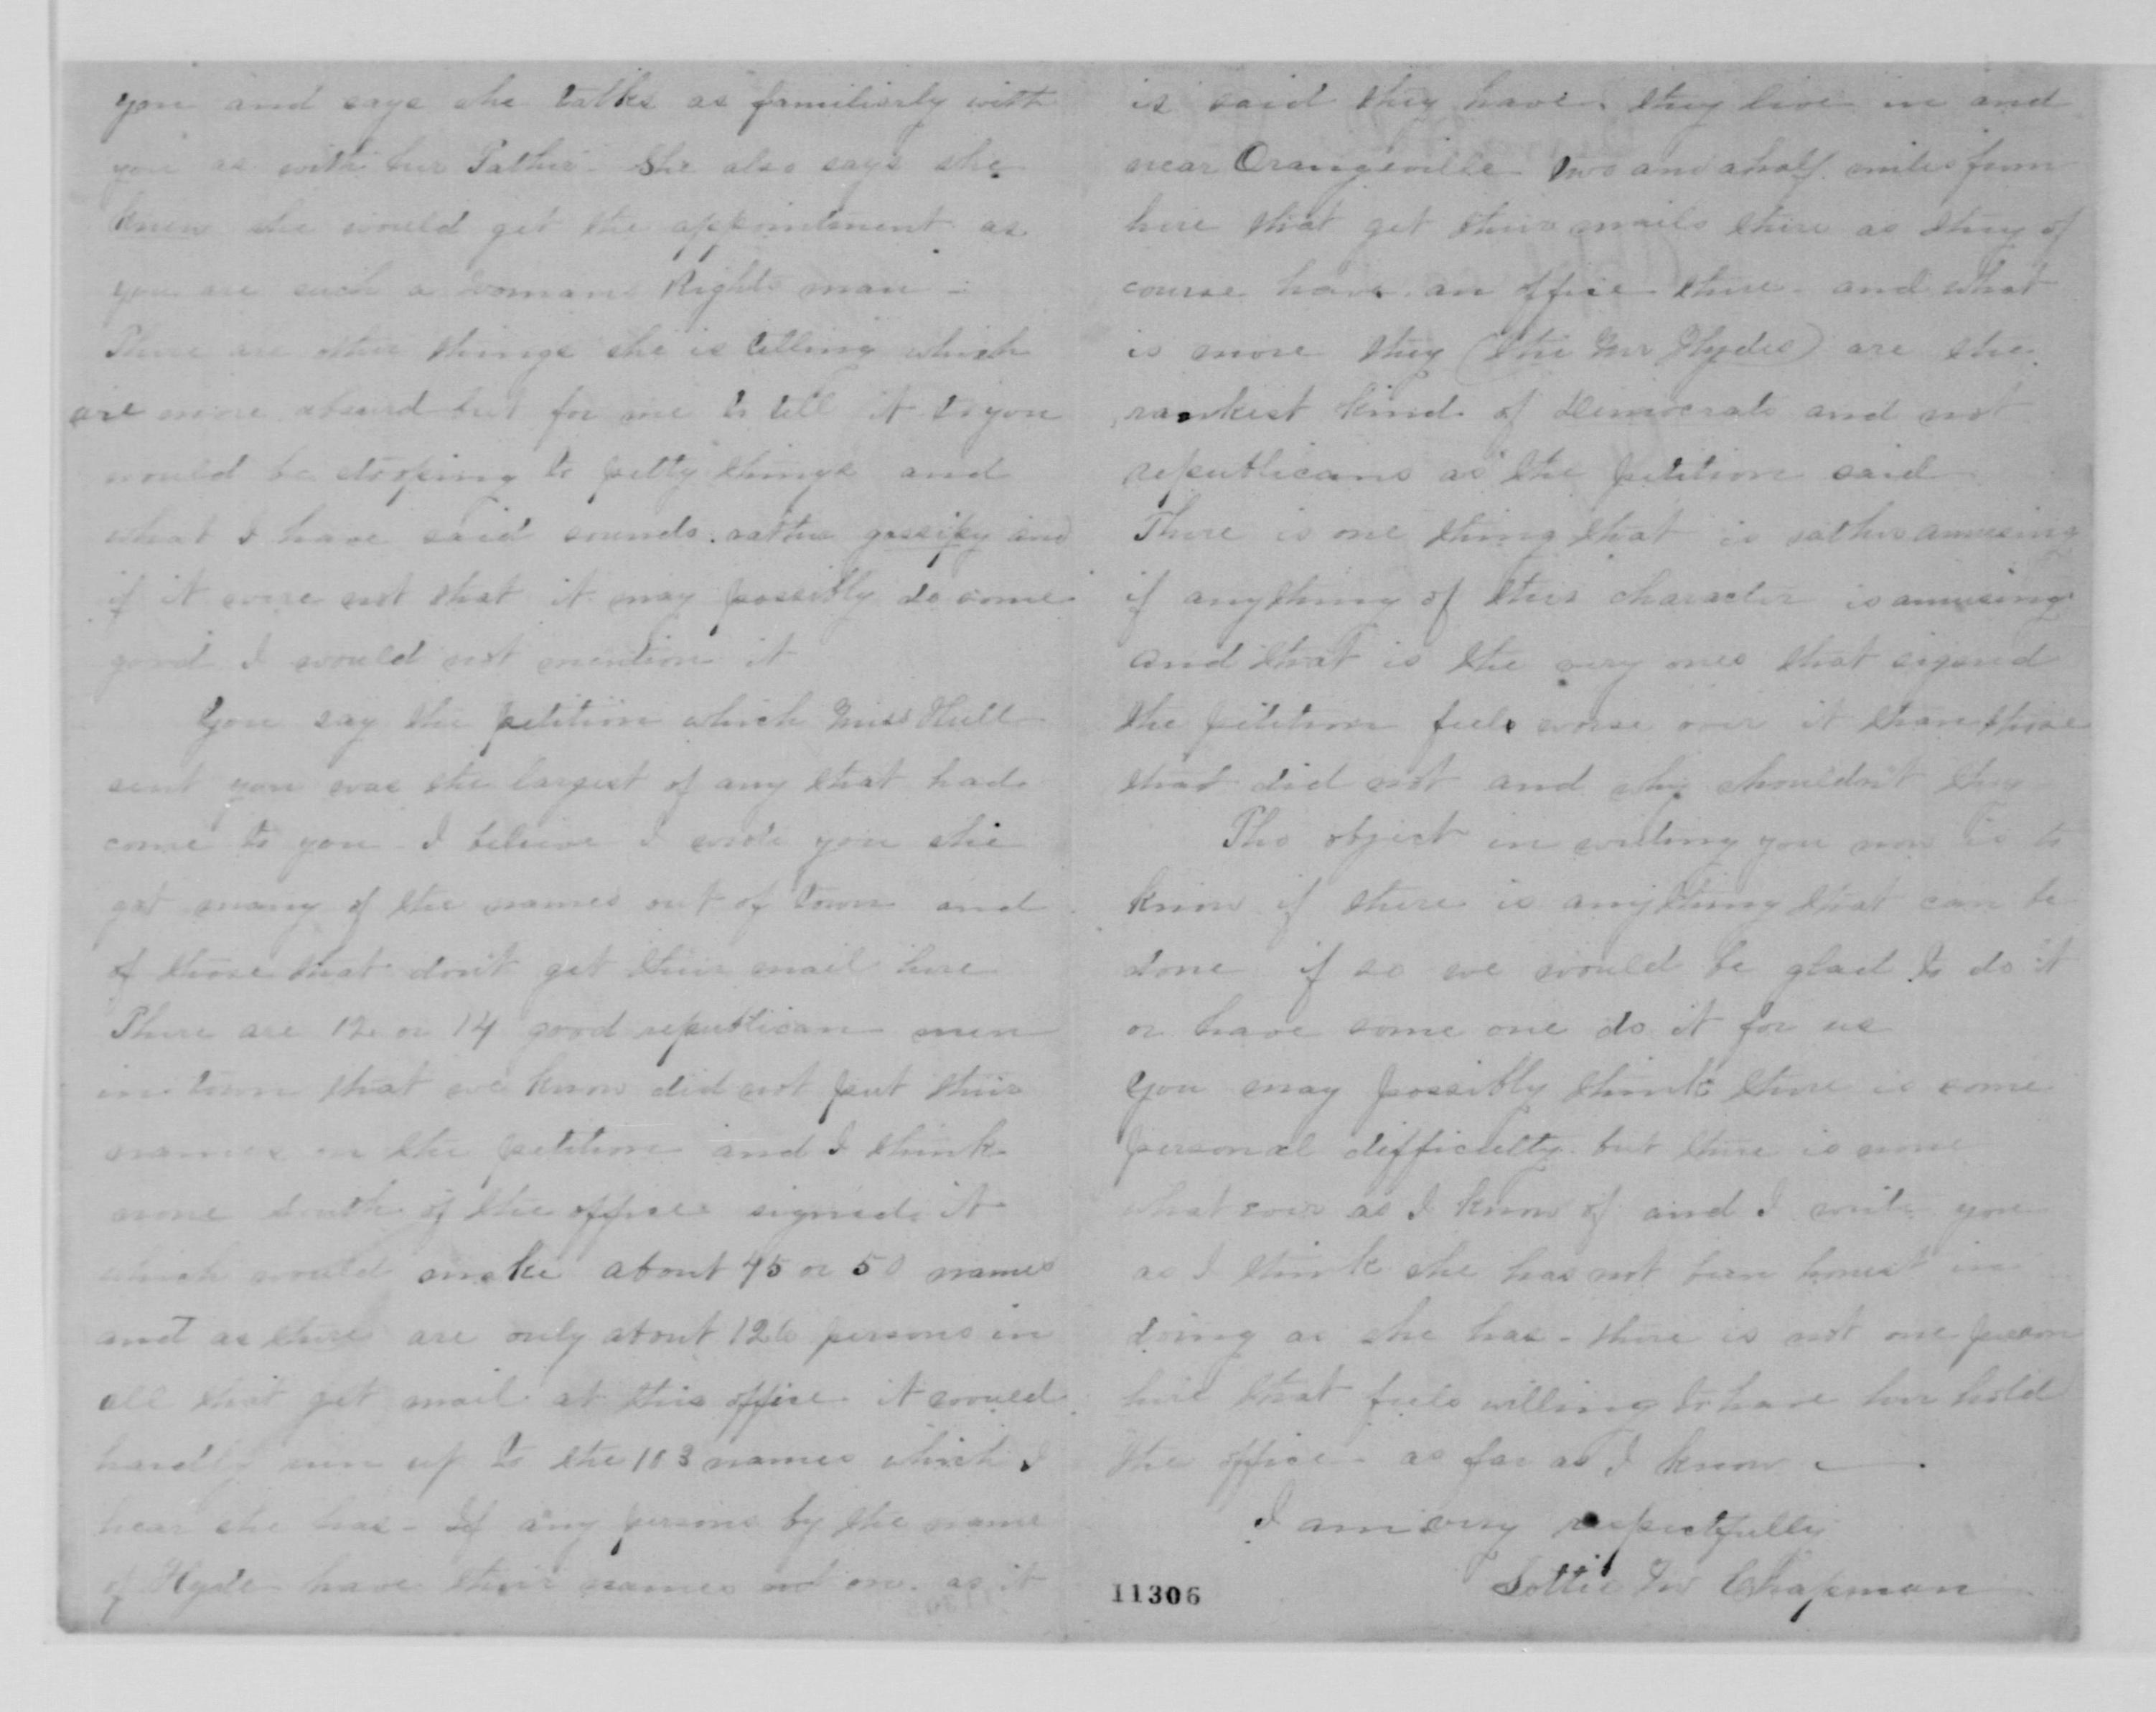 you and says she talks as familierly with
you as with her Father. She also says she
knew she would get the appointment as
you are such a womans Rights man -
There are other things she is telling which
are more absurd but for me to tell it to you
would be stooping to petty things and
what I have said sounds rather gossipy and
if it were not that it may possibly do some
good I would not mention it
You say the petition which Miss Hull
sent you was the largest of any that had
come to you I believe I wrote you she
got many of the names out of town and
of those that don't get their mail here
There are 12 or 14 good republican men
in town that we know did not put their
names on the petition and I think
none south of the office signed it
which would make about 45 or 50 names
and as there are only about 126 persons in
all that get mail at this office it would
hardly run up to the 103 names which I
hear she has - If any persons by the name
of Hyde have their names on as it
is said they have, they live in and
near Orangeville two and a half miles from
here that get their mails there as they of
course have an office there - and what
is more they (the Mr Hydes) are the
rankest kind of democrats and not
republicans as the petition said
There is one thing that is rather amusing
if anything of this character is amusing
and that is the very ones that signed
the petition feels worse over it than those
that did not and why shouldn't they
The object in writing you now is to
know if there is anything that can be
done if so we would be glad to do it
or have some one do it for us
You may possibly think there is some
personal difficulty but there is none
what ever as I know of and I write you
as I think she has not been honest in
doing as she has - there is not one person
here that feels willing to have her hold
the office - as far as I know -
I am very respectfully
Lottie M Chapman
11306